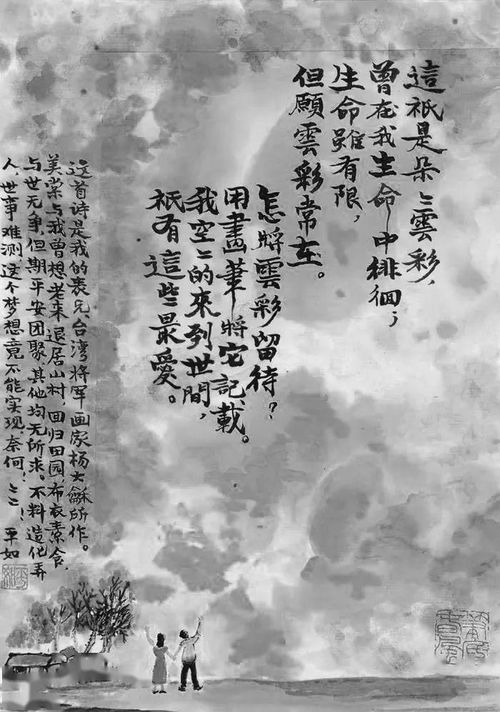 這祇是朵〻雲彩,
曾在我生命中徘徊;
生命雖有限,
但願雲彩常在。
怎將雲彩留待?
用畫筆將它記載。
我空〻的來到世間,
祇有這些最愛。
这首诗是我的表兄、台湾将军画家杨大龢所作。
美棠与我曾想老来退居山村,回归田园,布衣素食
与世无争,但期平安团聚,其他均无所求。不料造化弄
人,世事难测,这个梦想竟不能实现,奈何!〻〻! 平如